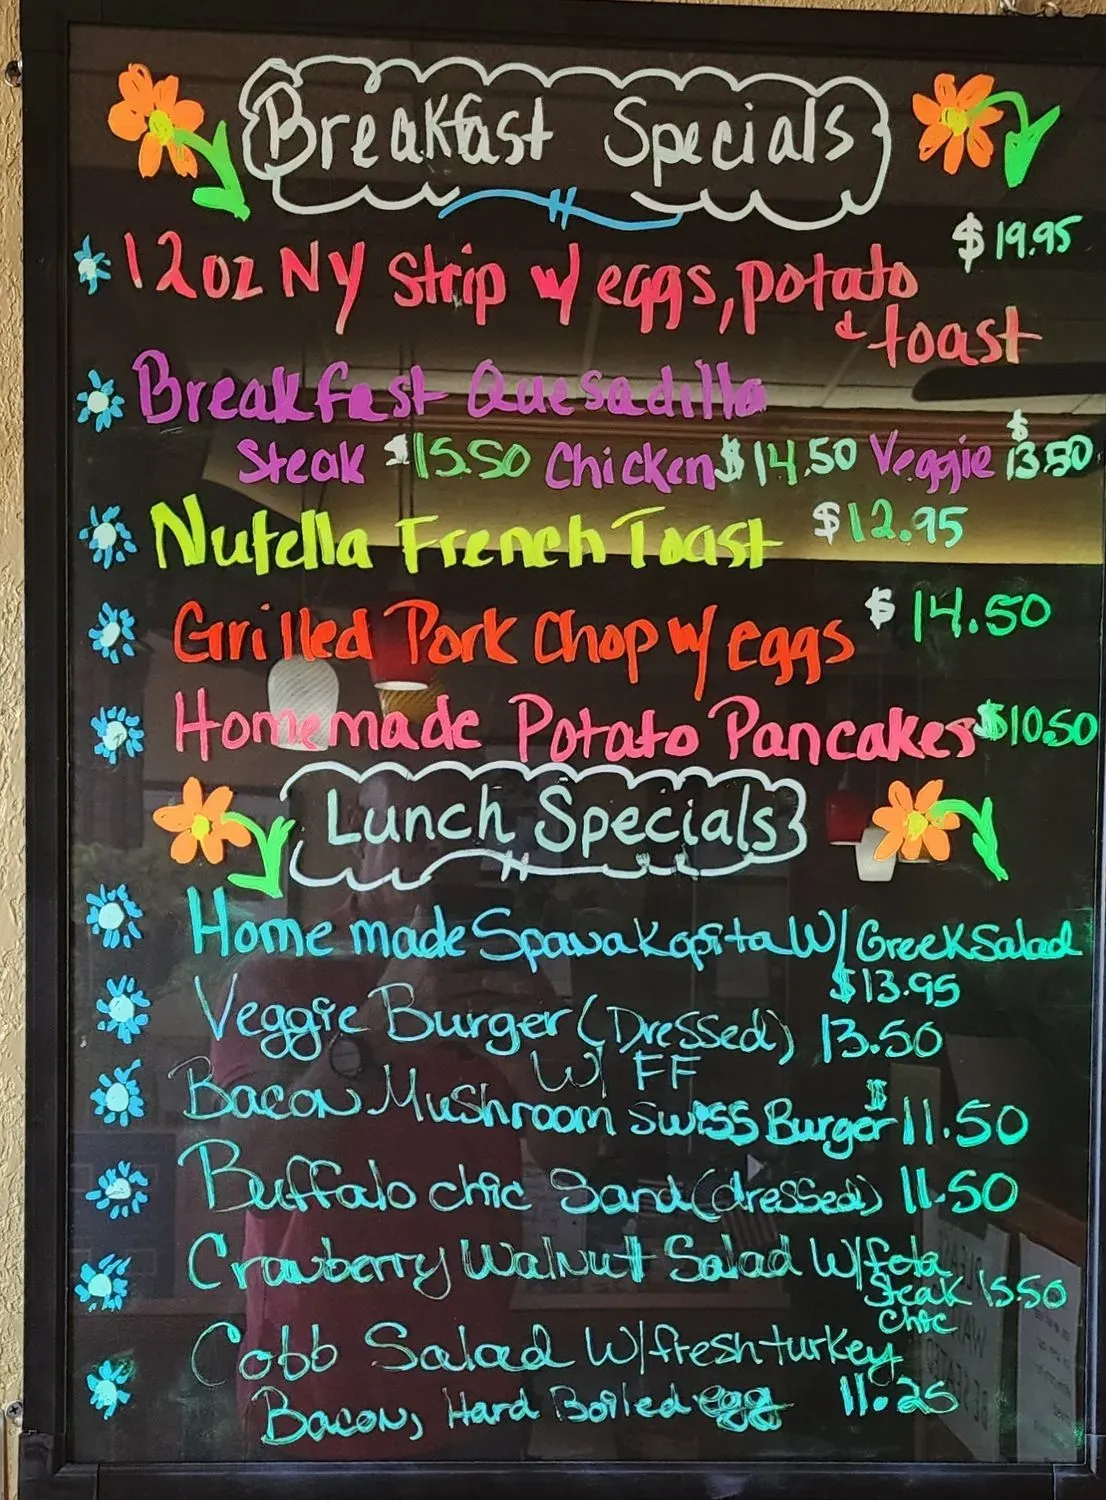 Breakfast Specials
$19.95
12oz NY Strip w/ eggs, potato
& toast
Breakfast Quesadilla
Steak $15.50 Chicken $14.50 Veggie $13.50
Nutella French Toast $12.95
Grilled Pork Chop w/ eggs $14.50
Homemade Potato Pancakes $10.50
Lunch Specials
Home made SpanaKopita W/ Greek Salad
$13.95
Veggie Burger (Dressed) 13.50
W/ FF
Bacon Mushroom Swiss Burger $11.50
Buffalo chic Sand (dressed) 11.50
Cranberry Walnut Salad W/ feta
Steak 15.50
Chic
Cobb Salad W/ fresh turkey
Bacon, Hard Boiled egg 11.25